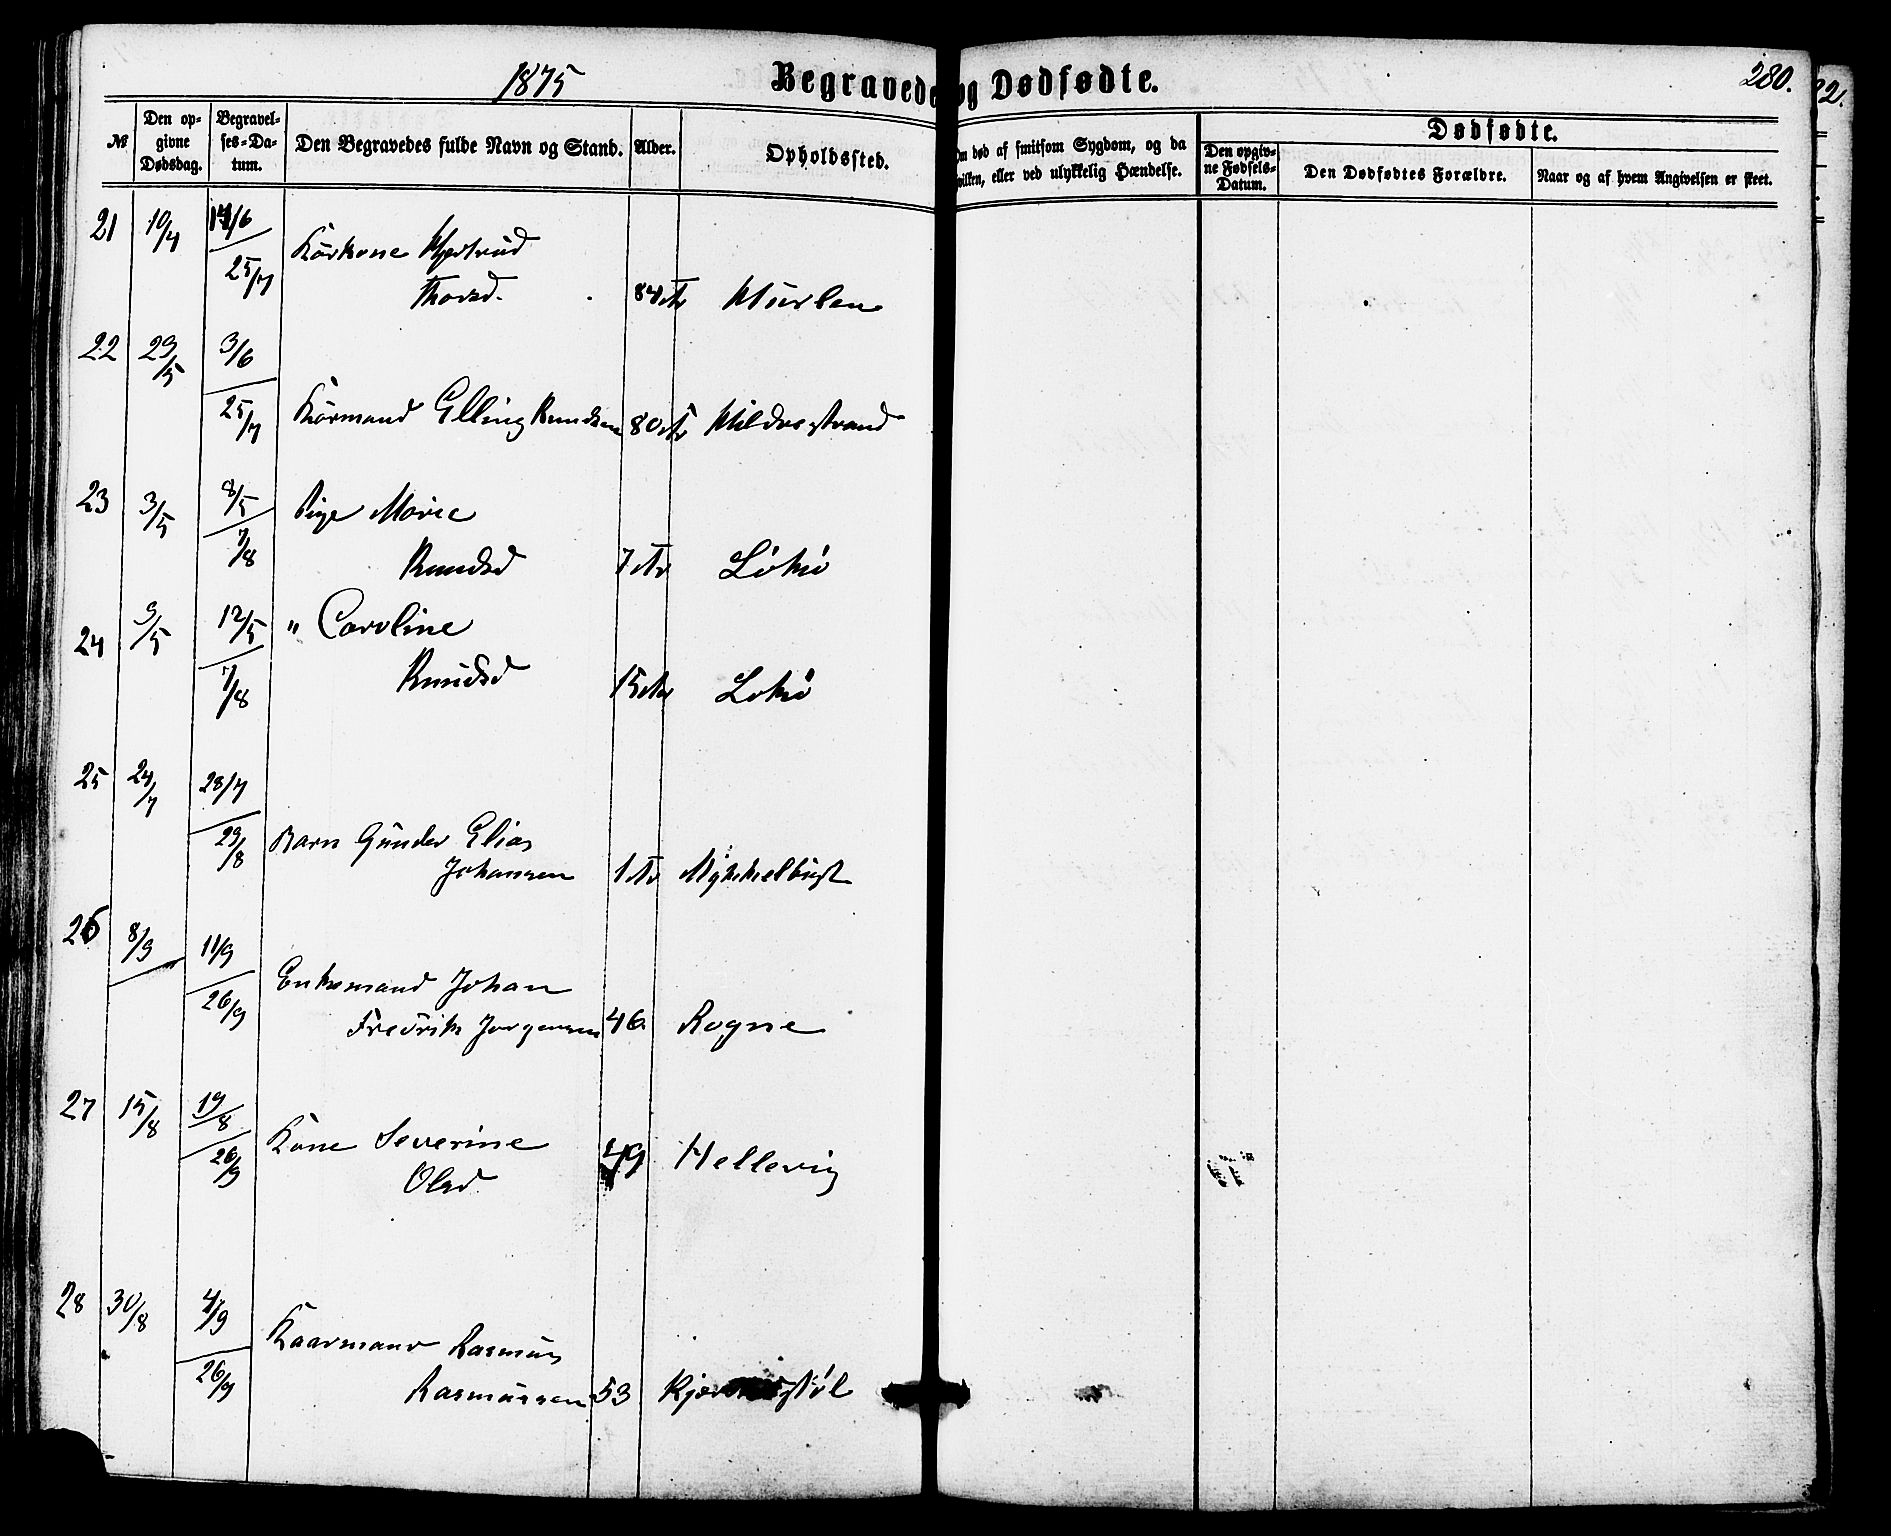 1875 Begravede og Dødfødte. 280.
22.
№
Den opgivne Dødsdag.
Begravelses-Datum.
Den Begravedes fulde Navn og Stand.
Alder.
Opholdssted.
død af smitsom Sygdom, og da
eller ved ulykkelig Hændelse.
Dødfødte.
Den opgivne Fødsels-Datum.
Den Dødfødtes Forældre.
Naar og af hvem Angivelsen er skeet.
21 10/4
25/7
Thorsd. 84
22 23/5 3/6
25/7 Elling Knudsen 80
23 3/5 8/5 Pige Marie
7/8 Knudsd 7 Löhö
24 9/5 12/5 " Caroline
7/8 Knudsd 15 Löhö
25 24/7 28/7
23/8 Barn Gunder Elias
Johansen 1 Myhkelbust
26 8/9 11/9
Enkemand Johan
26/9 Fredrik Jorgensen 46 Rogne
27 15/8 19/8
Kone Severine
26/9 Olsd 49 Hellevig
28 30/8 4/9
Kaarmand Rasmus
26/9 Rasmussen 53